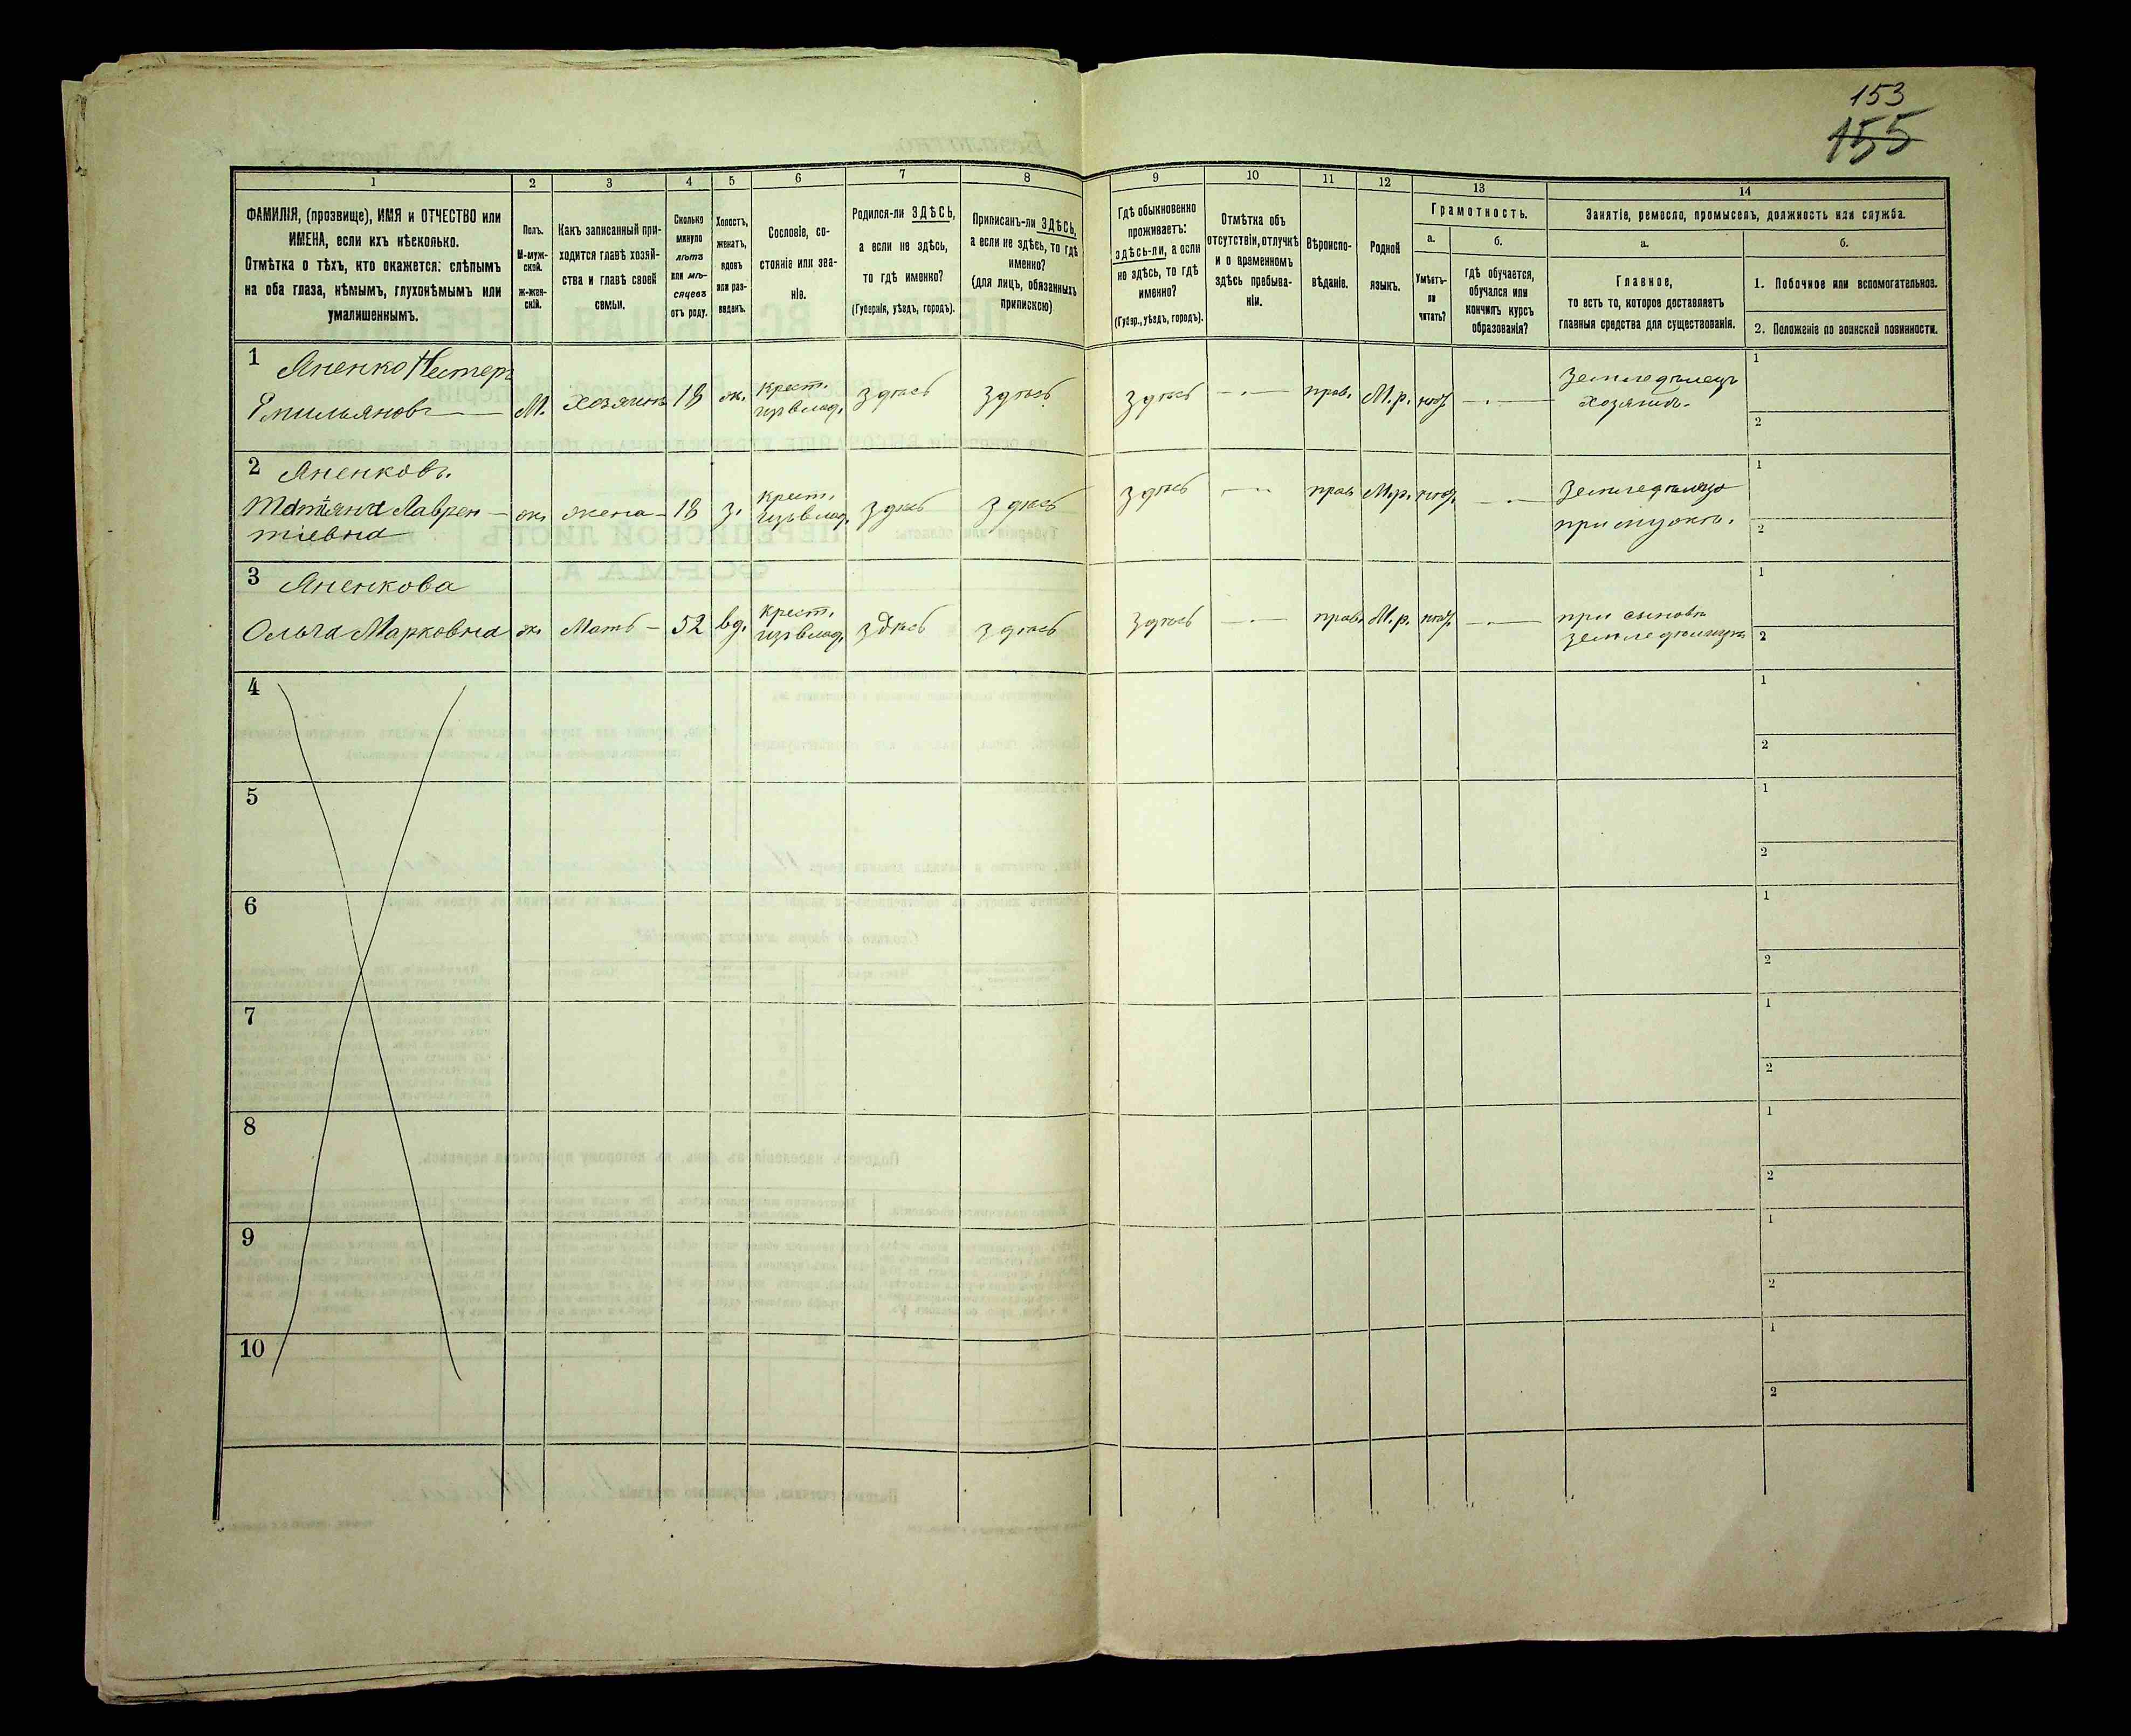 153
155
1 2 3 4 5 6 7 8 9 10 11 12 13 14
ФАМИЛІЯ, (прозвище), ИМЯ и ОТЧЕСТВО или
ИМЕНА, если ихъ нѣсколько.
Отмѣтка о тѣхъ, кто окажется: слѣпымъ
на оба глаза, нѣмымъ, глухонѣмымъ или
умалишеннымъ.
Полъ.
М-муж-
ской.
ж-жен-
скій.
Какъ записанный при-
ходится главѣ хозяй-
ства и главѣ своей
семьи.
Сколько
минуло
лѣтъ
или мѣ-
сяцевъ
отъ роду.
Холостъ,
женатъ,
вдовъ
или раз-
веденъ.
Сословіе, со-
стояніе или зва-
ніе.
Родился-ли ЗДѢСЬ,
а если не здѣсь,
то гдѣ именно?
(Губернія, уѣздъ, городъ).
Приписанъ-ли ЗДѢСЬ,
а если не здѣсь, то гдѣ
именно?
(для лицъ, обязанныхъ
припискою)
Гдѣ обыкновенно
проживаетъ:
здѣсь-ли, а если
не здѣсь, то гдѣ
именно?
(Губер., уѣздъ, городъ).
Отмѣтка объ
отсутствіи, отлучкѣ
и о временномъ
здѣсь пребыва-
ніи.
Вѣроиспо-
вѣданіе.
Родной
языкъ.
Грамотность.
а.
Умѣетъ-
ли
читать?
б.
гдѣ обучается,
обучался или
кончилъ курсъ
образованія?
Занятіе, ремесло, промыселъ, должность или служба.
а.
Главное,
то есть то, которое доставляетъ
главныя средства для существованія.
б.
1. Побочное или вспомогательное.
2. Положеніе по воинской повинности.
1 Яненко Нестеръ
Емильяновъ — М. хозяинъ 18 ж. крест. здѣсь здѣсь здѣсь — прав. М.р. — Земледѣлецъ
хозяинъ.
1
2
2 Яненковъ.
Татіяна Лаврен-
тіевна ж. жена — 18 з. крест. здѣсь здѣсь здѣсь — прав М.р. —
при мужѣ.
1
2
3 Яненкова
Ольга Марковна ж. Мать — 52 вд. крест. здѣсь здѣсь здѣсь — прав. М.р. — при сыновѣ
1
2
4
1
2
5
1
2
6
1
2
7
1
2
8
1
2
9
1
2
10
1
2